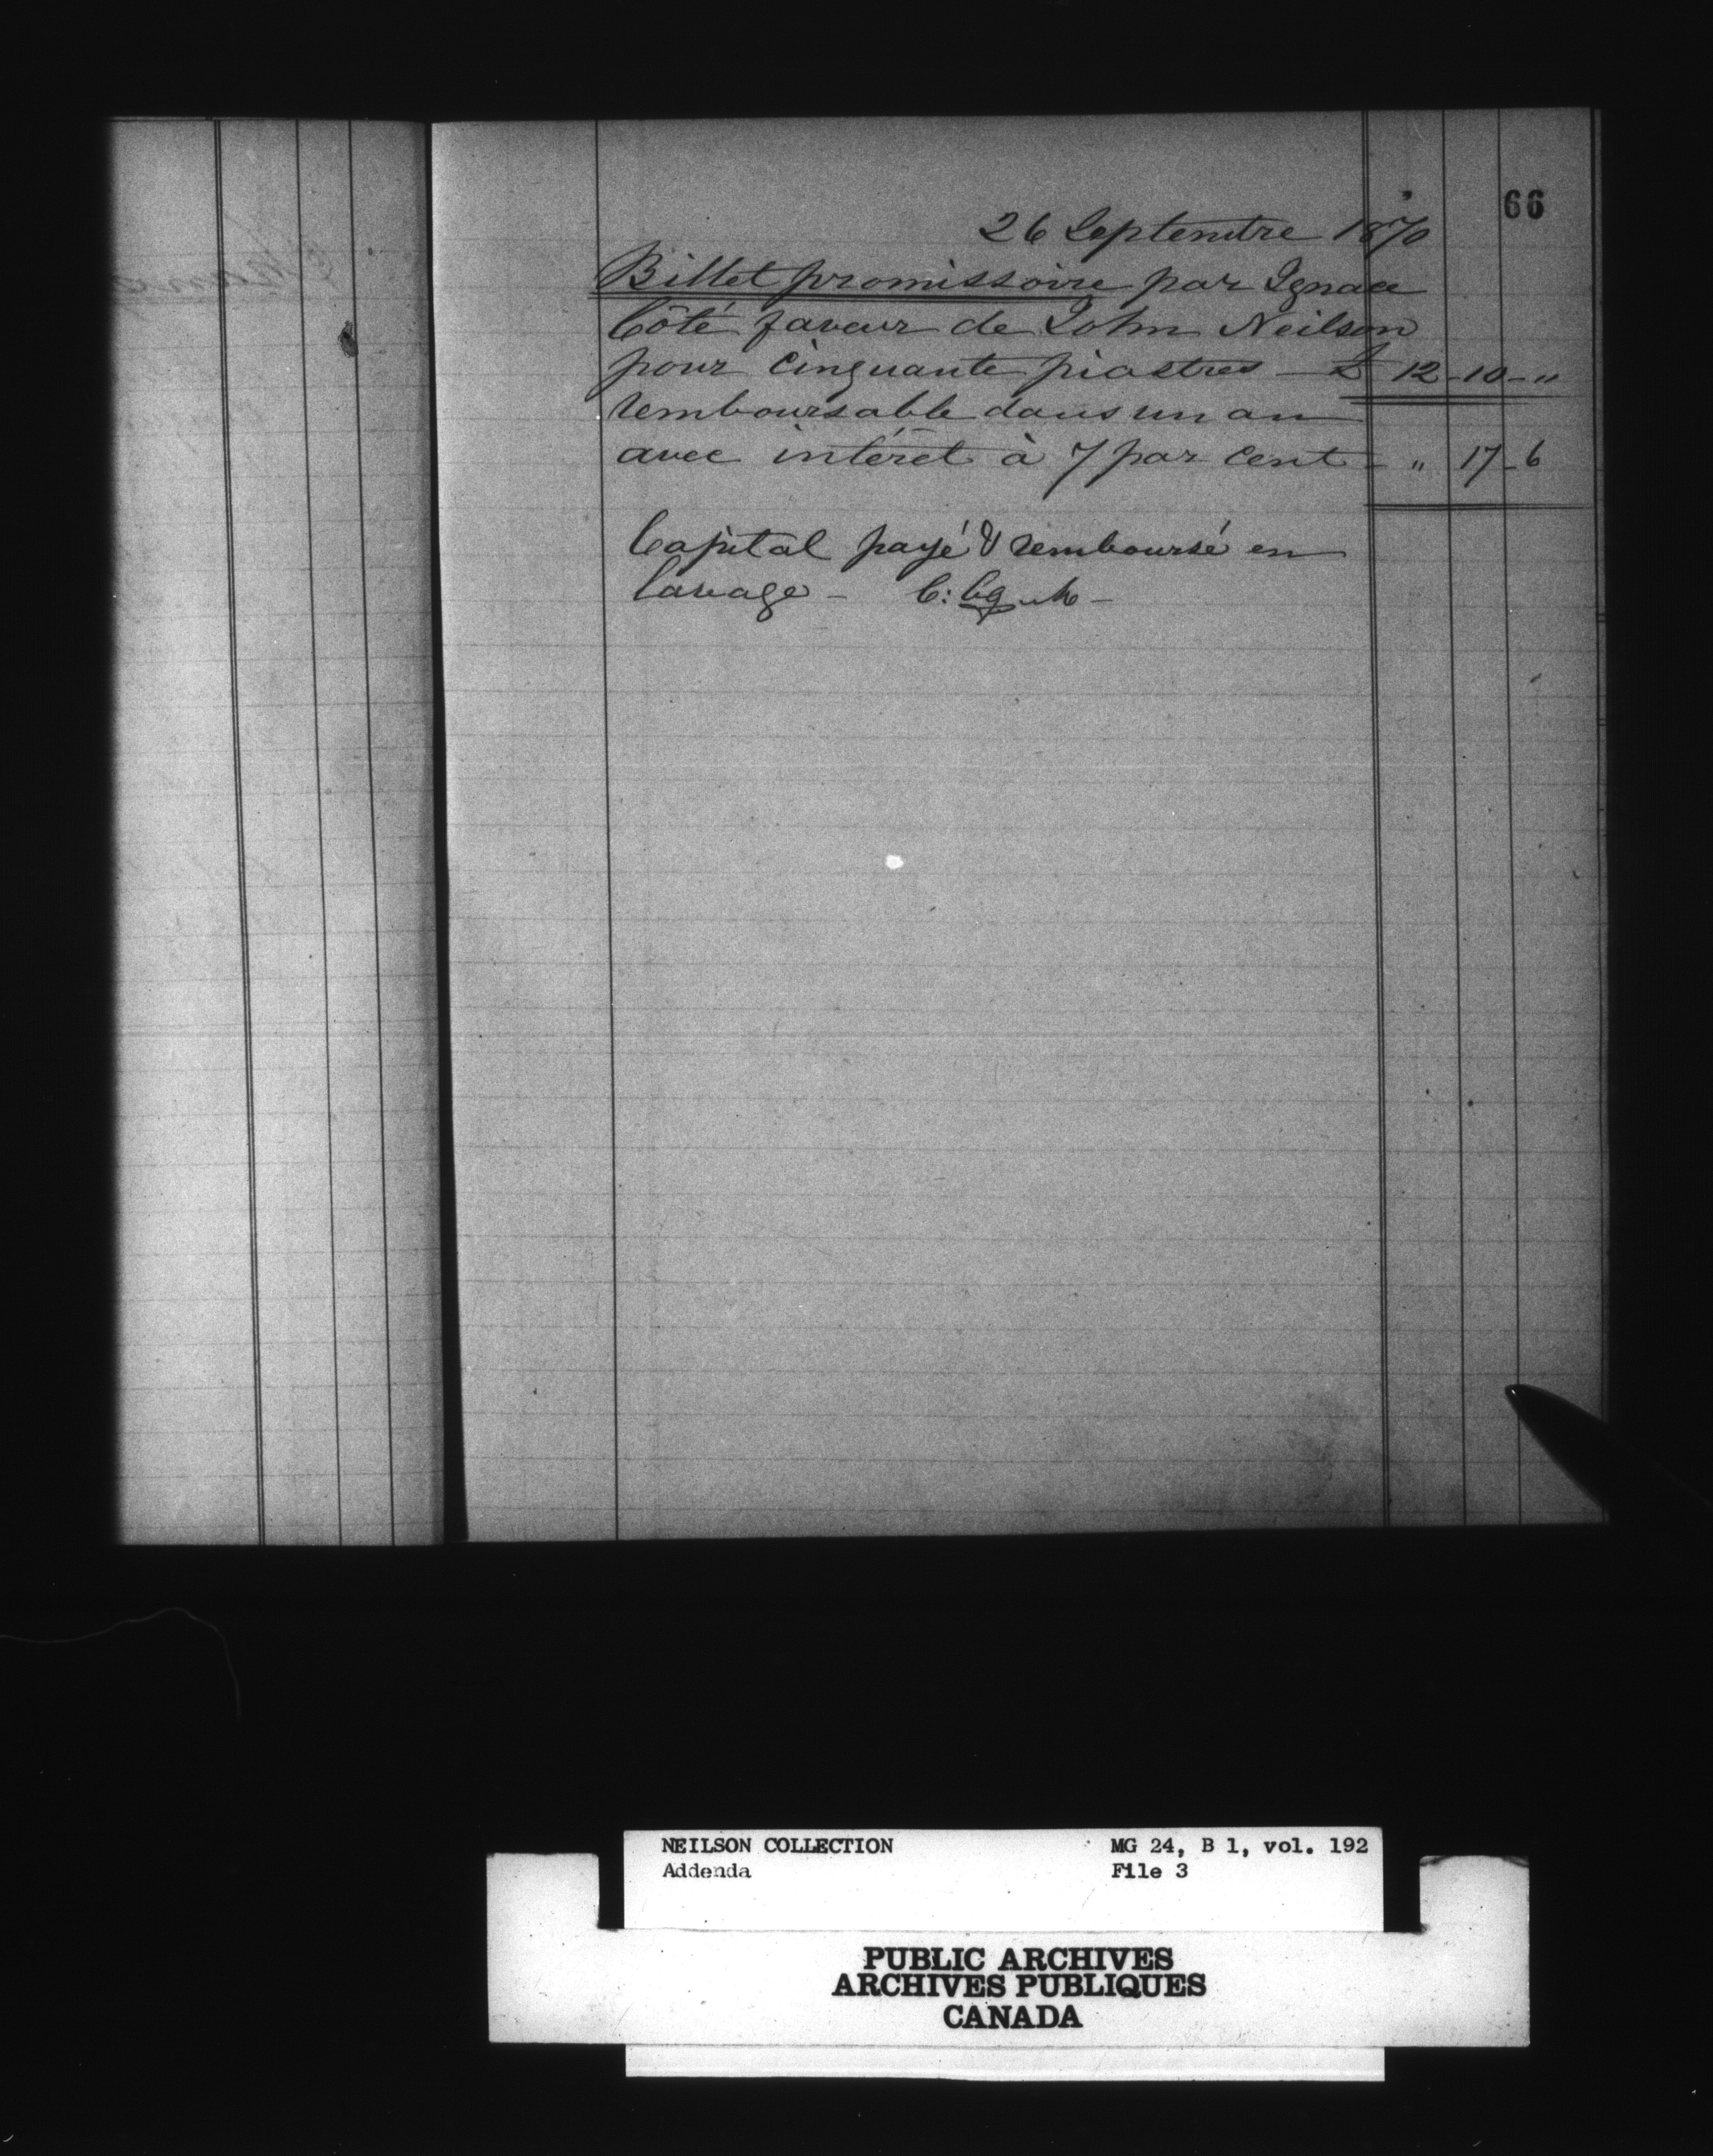 66
26 Septembre 1870
Billet promissoire par Ignace
Côté faveur de John Neilson
pour cinquante piastres — £ 12 - 10 - "
remboursable dans un an
avec intérêt à 7 par cent - " 17 - 6
Capital payé & remboursé en
lavage -
NEILSON COLLECTION MG 24, B 1, vol. 192
Addenda File 3
PUBLIC ARCHIVES
ARCHIVES PUBLIQUES
CANADA